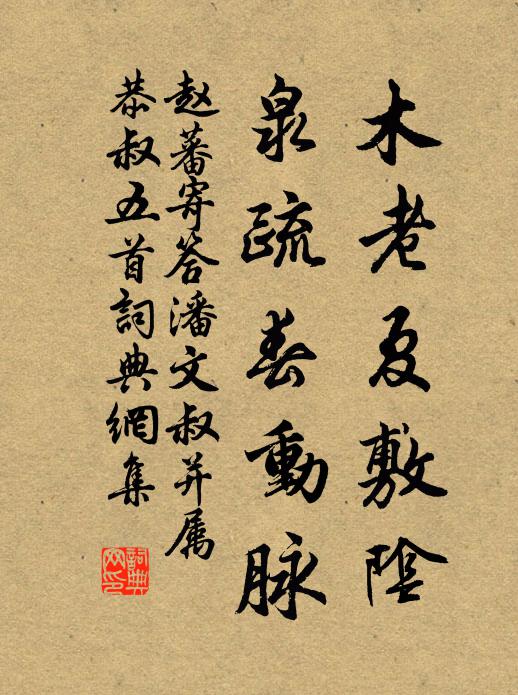 木老夏敷陰
泉疏春動脉
赵蕃寄答潘文叔并属
恭叔五首詞典網集
詞典网印